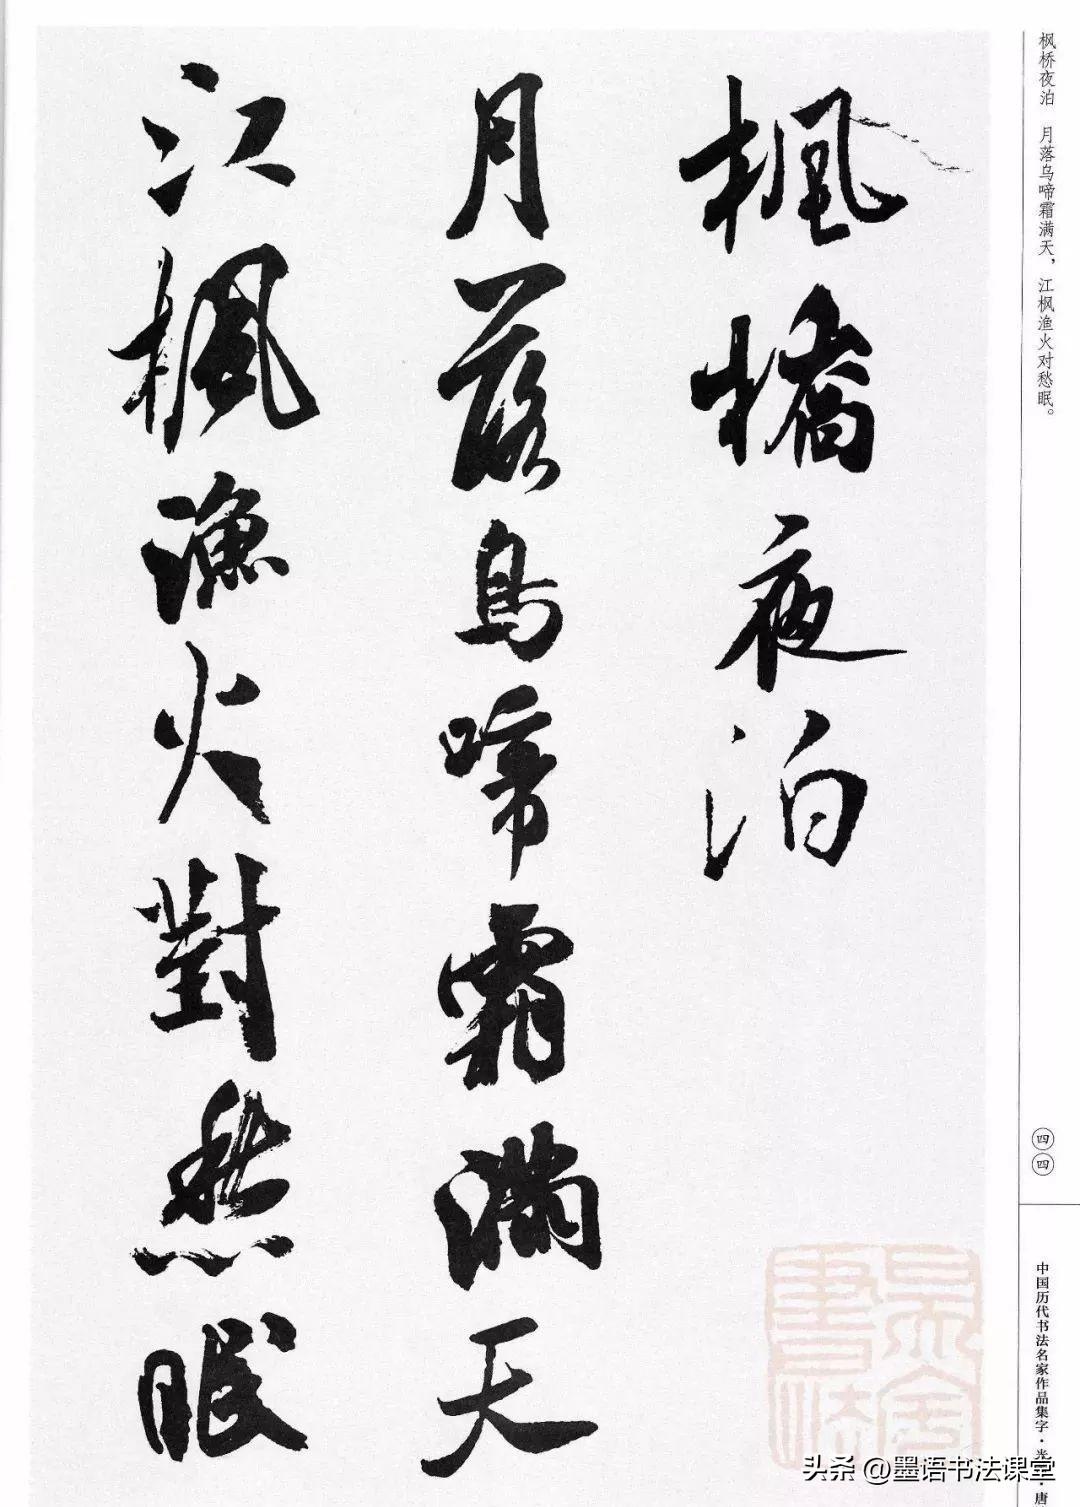 枫桥夜泊　月落乌啼霜满天，江枫渔火对愁眠。
楓橋夜泊
月落烏啼霜滿天
江楓漁火對愁眠
四四
中国历代书法名家作品集字·米
·唐
头条 @墨语书法课堂